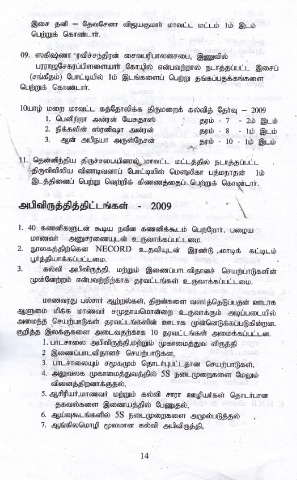 இசை தனி – தேவசேனா விஜயகுமார் மாவட்ட மட்டம் 1ம் இடம்
பெற்றுக் கொண்டார்.
09. ஸகிஷ்ணா ரவிச்சந்திரன் சைவபரிபாலனசபை, இணுவில்
பரராஜசேகரப்பிள்ளையார் கோயில் என்பவற்றால் நடாத்தப்பட்ட இசைப்
(சங்கீதம்) போட்டியில் 1ம் இடங்களைப் பெற்று தங்கப்பதக்கங்களை
பெற்றுக் கொண்டார்.
10யாழ் மறை மாவட்ட கத்தோலிக்க திருமறைக் கல்வித் தேர்வு – 2009
1. பெனிற்றா அன்ரன் யேசுதாஸ் தரம் - 7 - 2ம் இடம்
2. நிக்கலின் ஸ்ரனிஷா அன்ரன் தரம் - 8 - 1ம் இடம்
3. ஆன் அபிநயா அருள்நேசன் தரம் - 10 - 1ம் இடம்
11. தென்னிந்திய திருச்சபையினால் மாவட்ட மட்டத்தில் நடாத்தப்பட்ட
திருவிவிலிய வினாடிவினாப் போட்டியில் மௌலிகா பத்மநாதன் 1ம்
இடத்தினைப் பெற்று வெற்றிக் கிண்ணத்தைப் பெற்றுக் கொண்டார்.
அபிவிருத்தித்திட்டங்கள் - 2009
1. 40 கணனிகளுடன் கூடிய நவீன கணனிக்கூடம் பெற்றோர், பழைய
மாணவர் அனுசரணையுடன் உருவாக்கப்பட்டமை.
2. நூலகத்திற்கென NECORD உதவியுடன் இரண்டு மாடிக் கட்டிடம்
பூர்த்தியாக்கப்பட்டமை.
3. கல்வி அபிவிருத்தி, மற்றும் இணைப்பாடவிதானச் செயற்பாடுகளின்
முன்னேற்றம் என்பவற்றிற்காக தரவட்டங்கள் உருவாக்கப்பட்டமை.
மாணவரது பல்சார் ஆற்றல்கள், திறன்களை வளர்த்தெடுப்பதன் ஊடாக
ஆளுமை மிக்க மாணவர் சமுதாயமொன்றை உருவாக்கும் அடிப்படையில்
அமைந்த செயற்பாடுகள் தரவட்டங்களின் ஊடாக முன்னெடுக்கப்படுகின்றன.
குறித்த இலக்குகளை அடைவதற்காக 10 தரவட்டங்கள் அமைக்கப்பட்டன.
1. பாடசாலை அபிவிருத்தி,மற்றும் முகாமைத்துவ விருத்தி
2 இணைப்பாடவிதானச் செயற்பாடுகள்,
3. பாடசாலையும் சமூகமும் தொடர்புபட்டதான செயற்பாடுகள்,
4. அலுவலக முகாமைத்துவத்தில் 5S நடைமுறைகளை மேலும்
வினைத்திறனாக்குதல்,
5. ஆசிரியர்,மாணவர் மற்றும் கல்வி சாரா ஊழியர்கள் தொடர்பான
தகவல்களை இணையத்தில் பேணுதல்,
6. ஆய்வுகூடங்களில் 5S நடைமுறைகளை அமுல்படுத்தல்
7. ஆங்கிலமொழி மூலமான கல்வி அபிவிருத்தி,
14